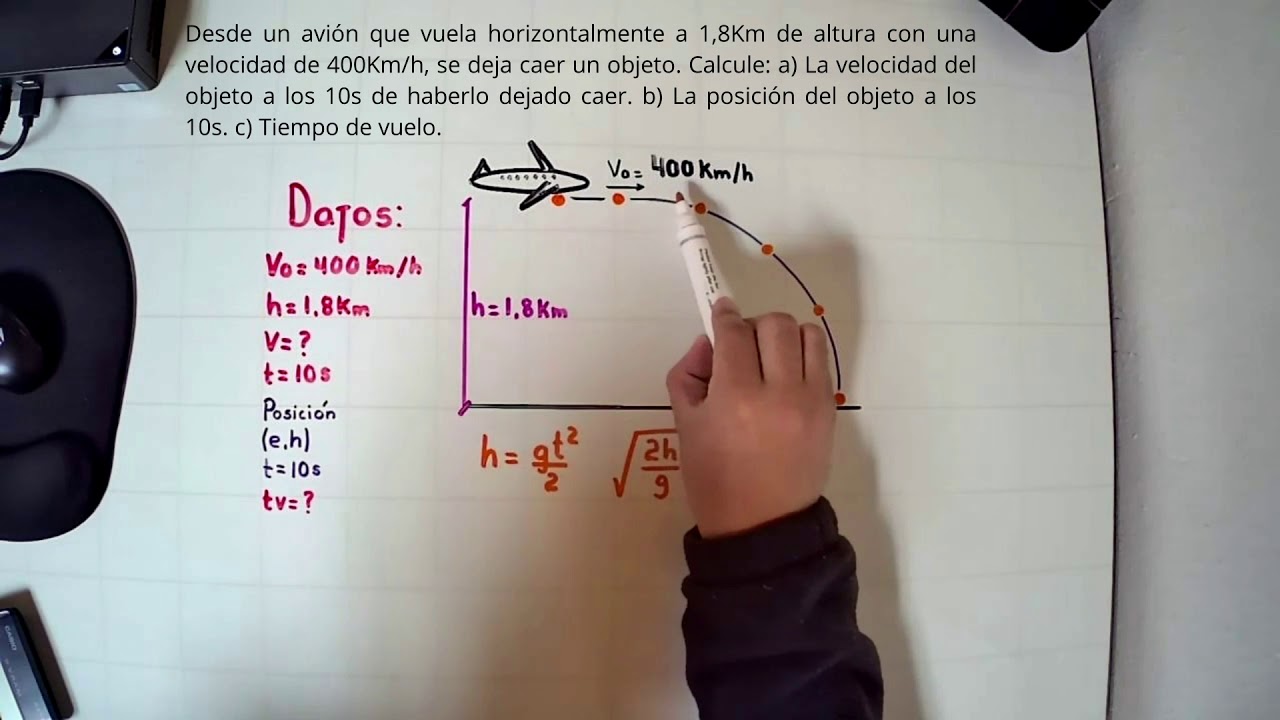 Desde un avión que vuela horizontalmente a 1,8Km de altura con una
velocidad de 400Km/h, se deja caer un objeto. Calcule: a) La velocidad del
objeto a los 10s de haberlo dejado caer. b) La posición del objeto a los
10s. c) Tiempo de vuelo.
Vo= 400 Km/h
Datos:
Vo=400 Km/h
h=1,8Km
h=1,8Km
V=?
t=10s
Posición
(e,h)
t=10s
tv=?
h= gt²/2
√2h/g
CASIO